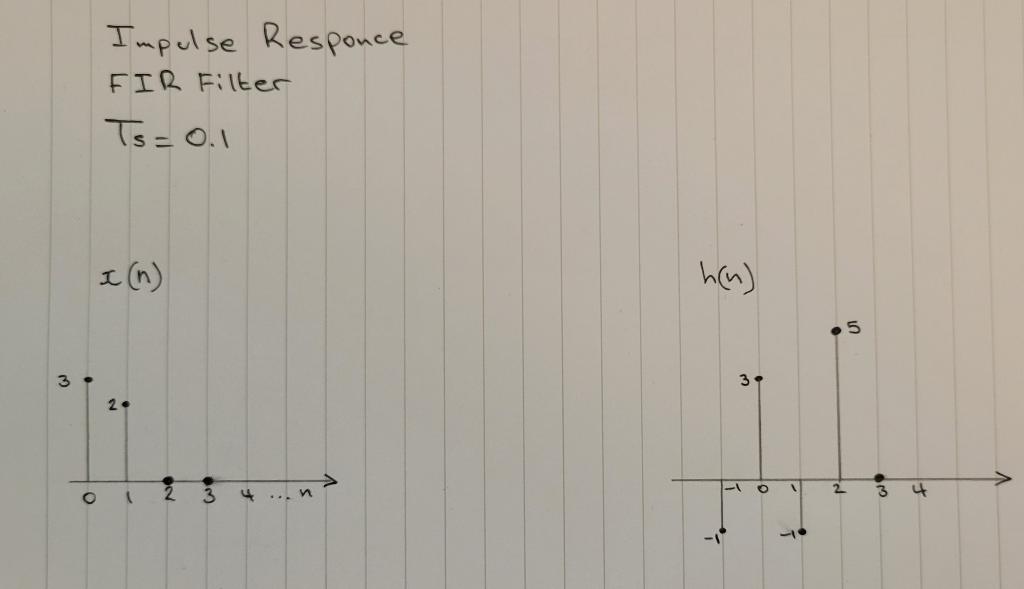 Impulse Responce
FIR Filter
Ts = 0.1
x(n)
3
2
0 1 2 3 4 ... n
h(n)
5
3
-1 0 1 2 3 4
-1 -1